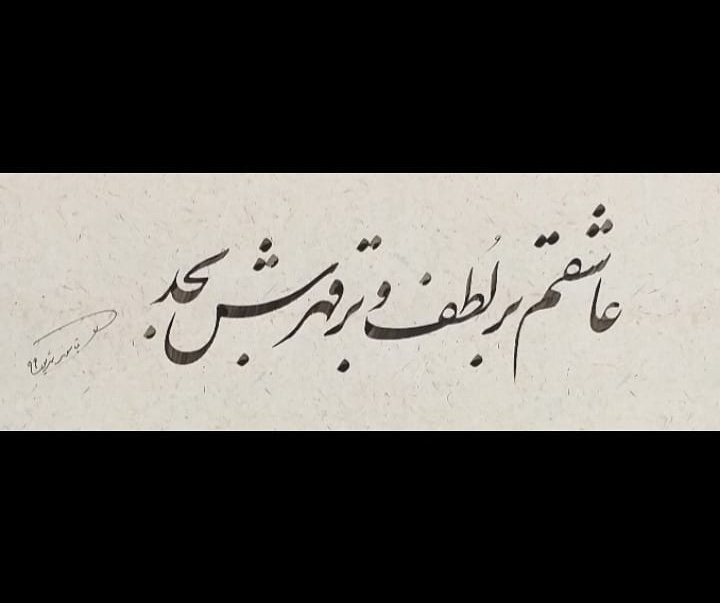 عاشقم بر لُطف و بر قهرش بجد